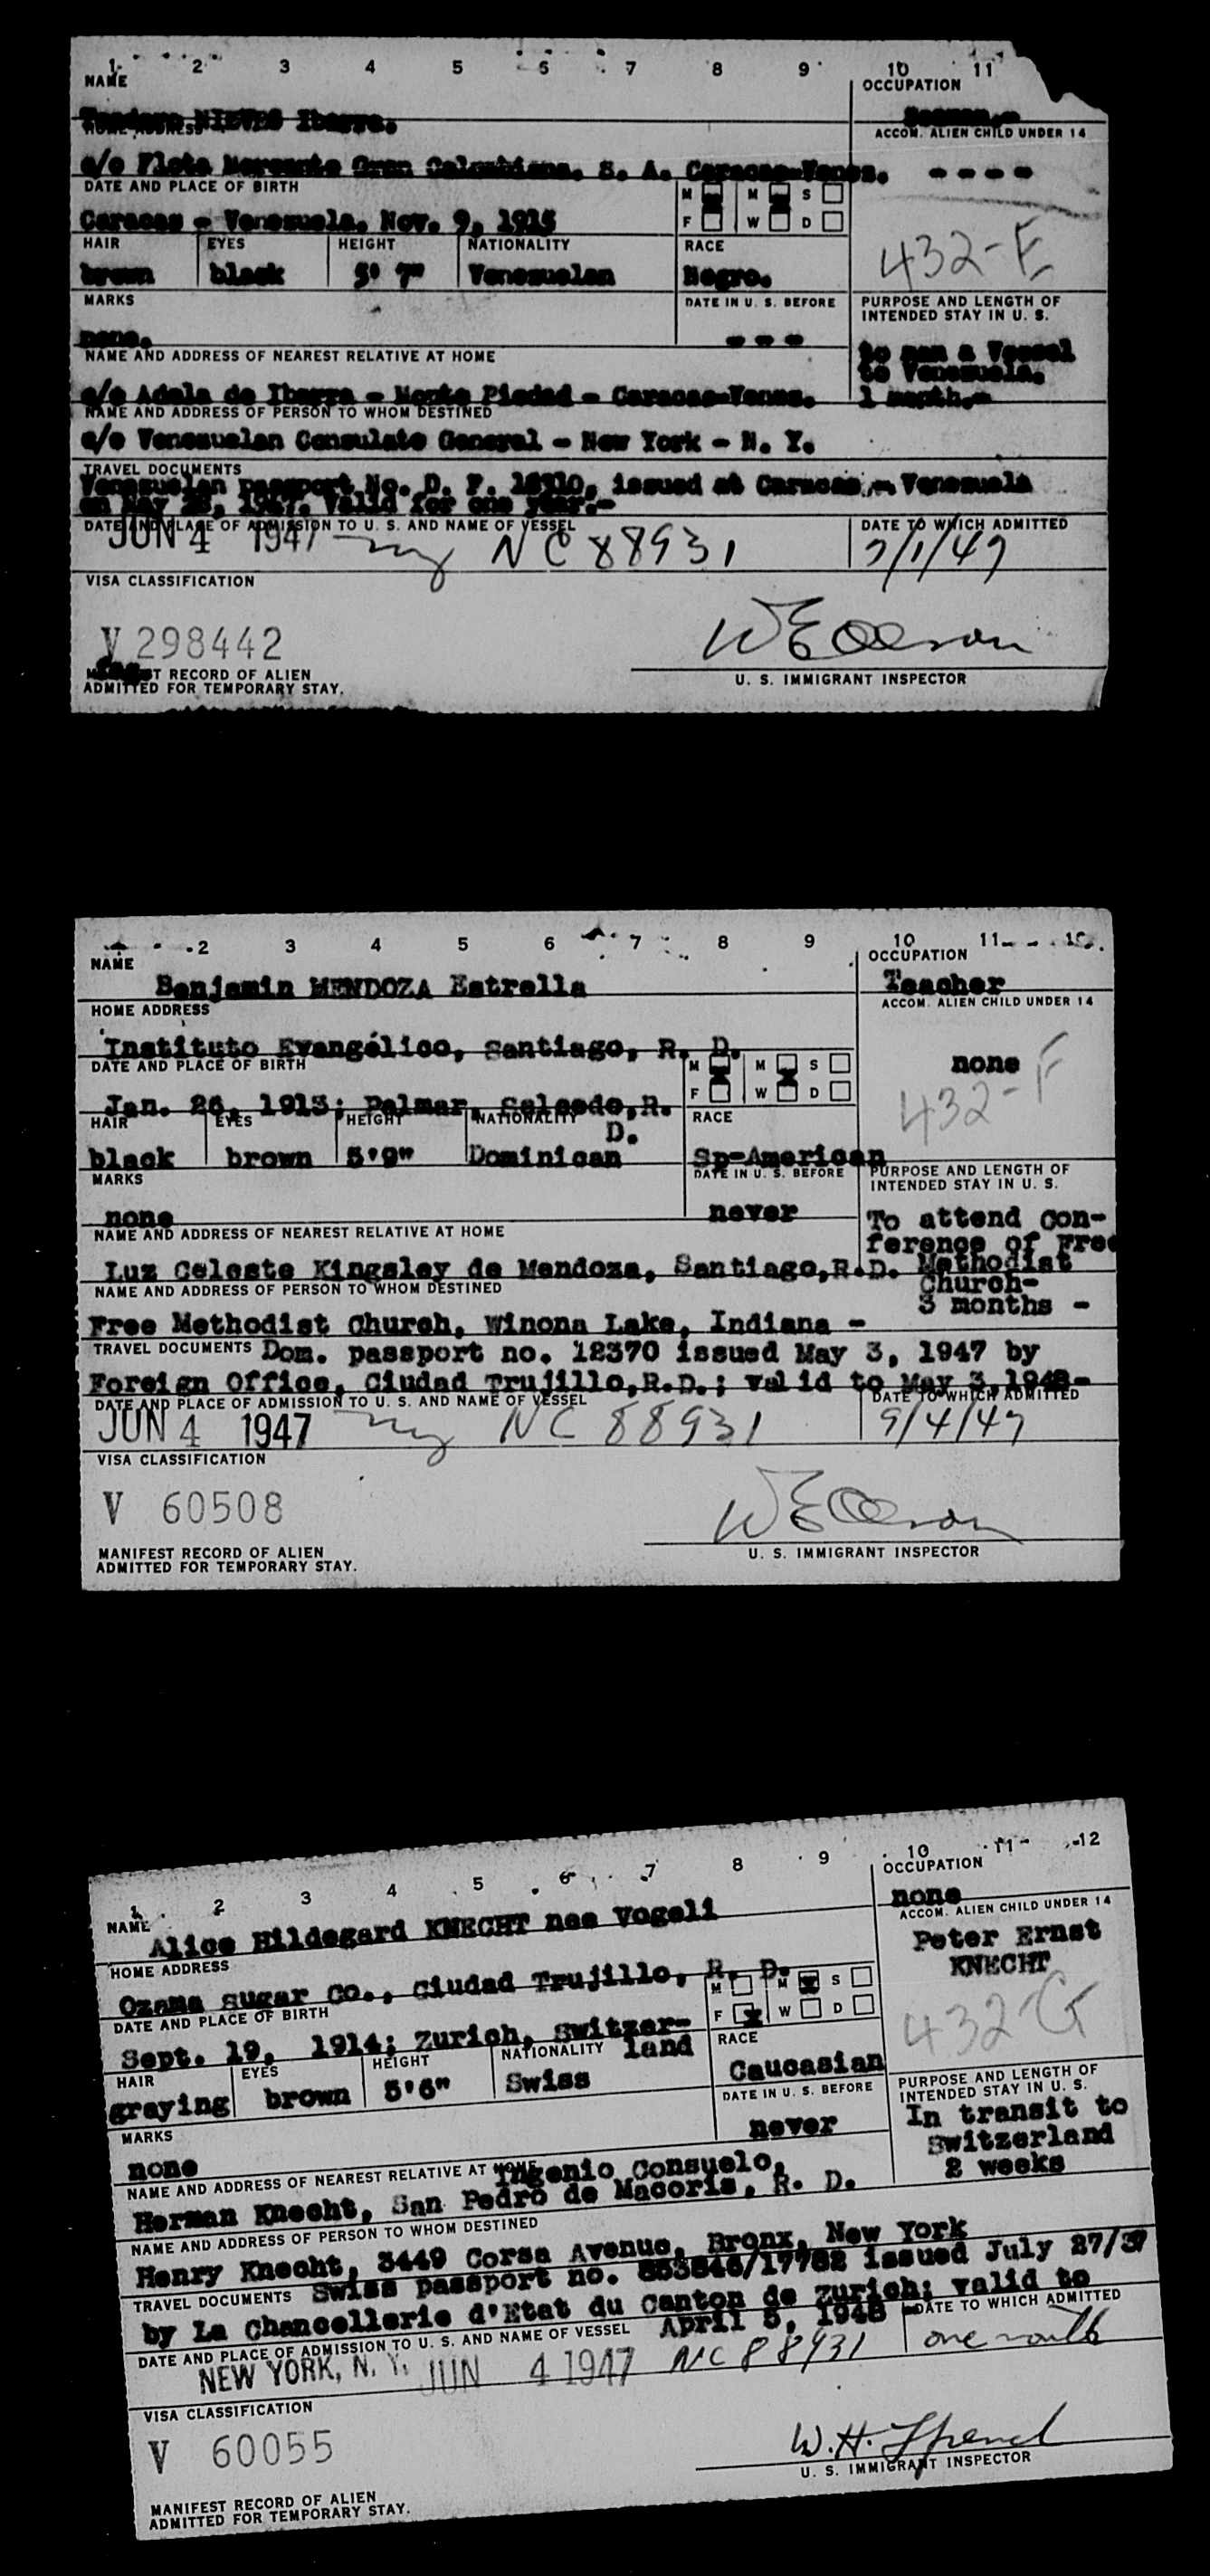 1 2 3 4 5 6 7 8 9 10 11
NAME
OCCUPATION
NIEVES Ibarra.
Seaman.-
HOME ADDRESS
ACCOM. ALIEN CHILD UNDER 14
c/o Flota Mercante Gran Colombiana, S. A. Caracas-Venez.
- - - -
DATE AND PLACE OF BIRTH
M M S
F W D
Caracas - Venezuela, Nov. 9, 1915
HAIR EYES HEIGHT NATIONALITY RACE
432-E
brown black 5' 7" Venezuelan Negro.
MARKS
DATE IN U. S. BEFORE
PURPOSE AND LENGTH OF
INTENDED STAY IN U. S.
none.
- - -
to man a Vessel
to Venezuela.
1 month.-
NAME AND ADDRESS OF NEAREST RELATIVE AT HOME
c/o Adela de Ibarra - Monte Piedad - Caracas-Venez.
NAME AND ADDRESS OF PERSON TO WHOM DESTINED
c/o Venezuelan Consulate General - New York - N. Y.
TRAVEL DOCUMENTS
Venezuelan passport No. D. F. issued at Caracas - Venezuela
on May 1947. Valid for one year.-
DATE AND PLACE OF ADMISSION TO U. S. AND NAME OF VESSEL
DATE TO WHICH ADMITTED
JUN 4 1947 ny NC 88931
7/1/47
VISA CLASSIFICATION
V 298442
W E Olson
MANIFEST RECORD OF ALIEN
ADMITTED FOR TEMPORARY STAY.
U. S. IMMIGRANT INSPECTOR
2 3 4 5 6 7 8 9 10 11
NAME
OCCUPATION
Benjamin MENDOZA Estrella
Teacher
HOME ADDRESS
ACCOM. ALIEN CHILD UNDER 14
Instituto Evangélico, Santiago, R. D.
none
DATE AND PLACE OF BIRTH
M M S
F W D
432-F
Jan. 26, 1913; Palmar, Salcedo, R.
D.
HAIR EYES HEIGHT NATIONALITY RACE
black brown 5'9" Dominican Sp-American
MARKS
DATE IN U. S. BEFORE
PURPOSE AND LENGTH OF
INTENDED STAY IN U. S.
none
never
To attend con-
ference of Free
Methodist
Church-
3 months -
NAME AND ADDRESS OF NEAREST RELATIVE AT HOME
Luz Celeste Kingsley de Mendoza, Santiago,R.D.
NAME AND ADDRESS OF PERSON TO WHOM DESTINED
Free Methodist Church, Winona Lake, Indiana -
TRAVEL DOCUMENTS Dom. passport no. 12370 issued May 3, 1947 by
Foreign Office, Ciudad Trujillo,R.D.; valid to May 3,1948-
DATE AND PLACE OF ADMISSION TO U. S. AND NAME OF VESSEL
DATE TO WHICH ADMITTED
JUN 4 1947 ny NC 88931
9/4/47
VISA CLASSIFICATION
V 60508
W E Olson
MANIFEST RECORD OF ALIEN
ADMITTED FOR TEMPORARY STAY.
U. S. IMMIGRANT INSPECTOR
1 2 3 4 5 6 7 8 9 10 11 12
NAME
OCCUPATION
Alice Hildegard KNECHT nee Vogeli
none
HOME ADDRESS
ACCOM. ALIEN CHILD UNDER 14
Ozama Sugar Co., Ciudad Trujillo, R. D.
Peter Ernst
KNECHT
DATE AND PLACE OF BIRTH
M M S
F W D
432-G
Sept. 19, 1914; Zurich, Switzer-
land
HAIR EYES HEIGHT NATIONALITY RACE
graying brown 5'6" Swiss Caucasian
MARKS
DATE IN U. S. BEFORE
PURPOSE AND LENGTH OF
INTENDED STAY IN U. S.
none
never
In transit to
Switzerland
2 weeks
NAME AND ADDRESS OF NEAREST RELATIVE AT HOME
Ingenio Consuelo,
Herman Knecht, San Pedro de Macoris, R. D.
NAME AND ADDRESS OF PERSON TO WHOM DESTINED
Henry Knecht, 3449 Corsa Avenue, Bronx, New York
TRAVEL DOCUMENTS Swiss passport no. 553546/17782 issued July 27/37
by La Chancellerie d'Etat du Canton de Zurich; valid to
April 5, 1948 -
DATE AND PLACE OF ADMISSION TO U. S. AND NAME OF VESSEL
DATE TO WHICH ADMITTED
NEW YORK, N. Y. JUN 4 1947 NC 88931
one month
VISA CLASSIFICATION
V 60055
W. H.
MANIFEST RECORD OF ALIEN
ADMITTED FOR TEMPORARY STAY.
U. S. IMMIGRANT INSPECTOR